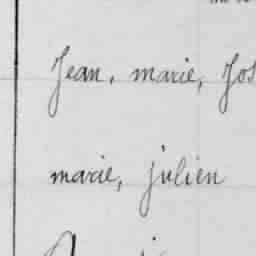 Jean, marie, Jos
marie, julien